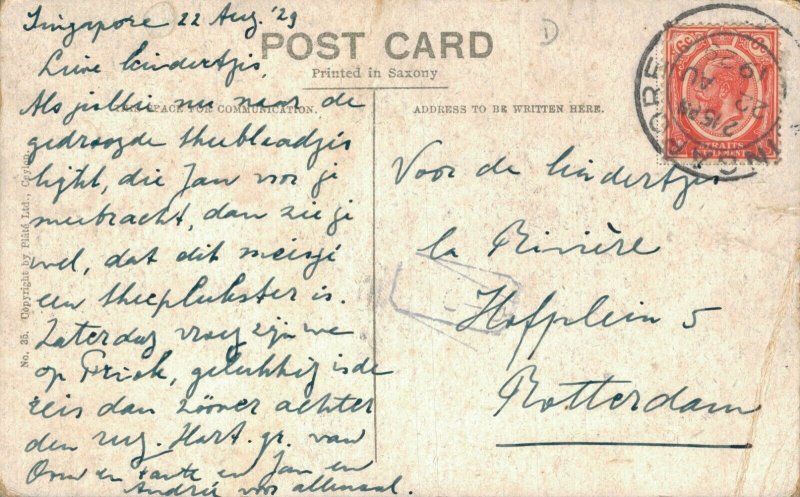 Singapore 22 Aug. '29
POST CARD
Printed in Saxony
THIS SPACE FOR COMMUNICATION.
ADDRESS TO BE WRITTEN HERE.
Lieve kindertjes,
Als jullie nu naar de
gedroogde theeblaadjes
kijkt, die Jan voor je
meebracht, dan zie je
wel, dat dit meisje
een theeplukster is.
Zaterdag vroeg zijn we
op Priok, gelukkig is de
reis dan zóóver achter
den rug. Hart. gr. van
Oom en tante en Jan en
André voor allemaal.
Voor de kindertjes
la Rivière
Hofplein 5
Rotterdam
No. 35. Copyright by Plâté Ltd., Ceylon.
SINGAPORE
2.15 PM
22 AU
19
STRAITS
SETTLEMENTS
6c
D